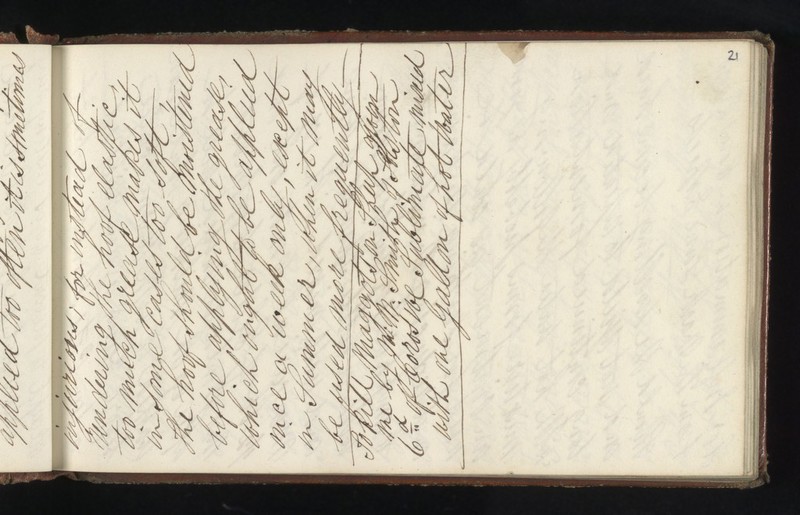 applied too often it is sometimes
injurious, for instead of
rendering the hoof elastic,
too much grease makes it
in some cases too soft,
The hoof should be moistened
before applying the grease,
which ought to be applied
once a week only, except
in Summer, when it may
be used more frequently
To kill Maggots in Sheep given
me by W. Smith
6d of Corosive Sublimate mixed
with one Gallon of hot Water
21